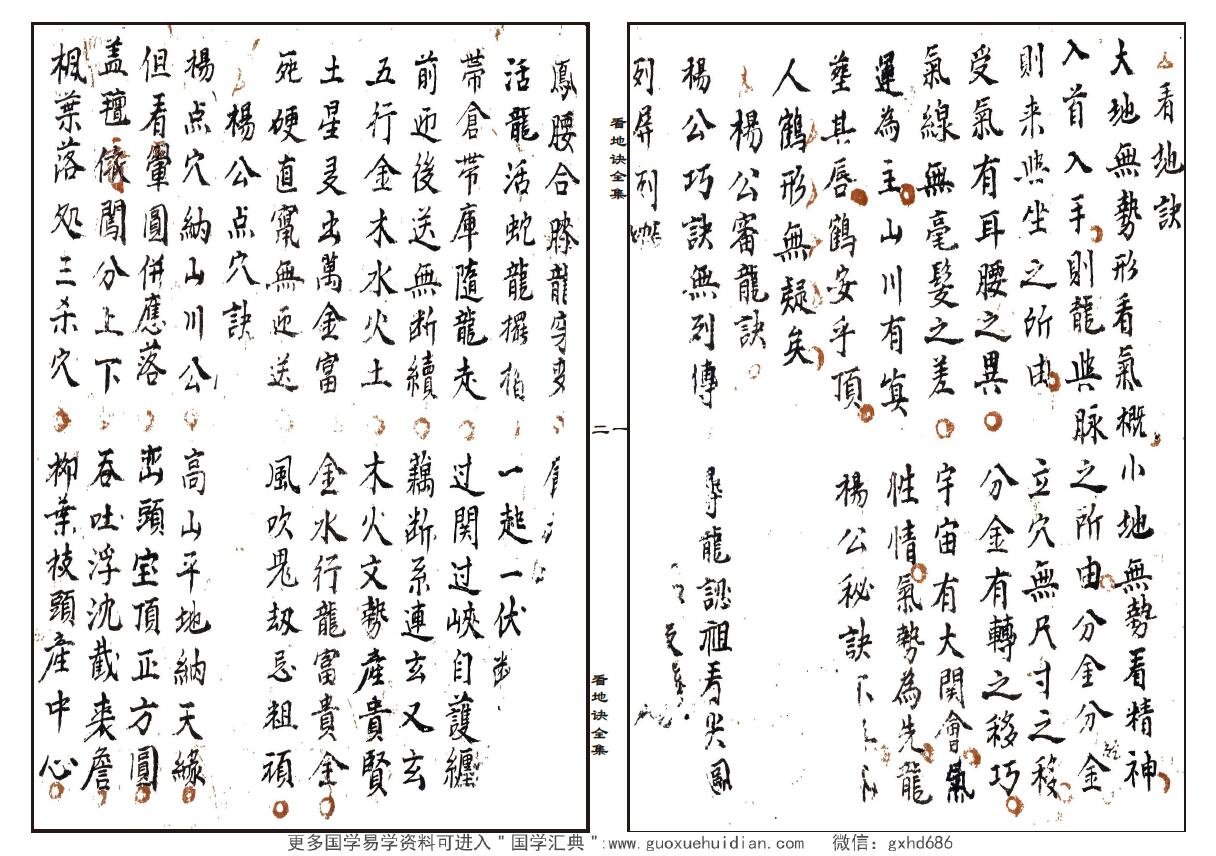 看地訣
大地無勢形看氣概小地無勢看精神
入首入手則龍與脉之所由分金分金
則来與坐之所由立穴無尺寸之移
受氣有耳腰之異分金有轉之移巧
氣線無毫髮之差宇宙有大関會氣
運為主山川有真性情氣勢為先龍
塋其唇鶴安乎頂楊公秘訣
人鶴形無疑矣
楊公審龍訣
楊公巧訣無列傳尋龍認祖看尖圓
列屏列
鳳腰合膝龍
活龍活蛇龍擺一起一伏
帶倉帶庫隨龍走过関过峽自護纏
前迎後送無断續藕断系連玄又玄
五行金木水火土木火文勢產貴賢
土星是出萬金富金水行龍富貴金
死硬直竄無迎送風吹鬼劫忌祖頑
楊公点穴訣
楊点穴納山川公高山平地納天緣
但看暈圓併應落巒頭室頂正方圓
盖龍依闊分上下吞吐浮沈截裹簷
楓葉落处三杀穴柳葉枝頭產中心
看地诀全集
一
二
看地诀全集
更多国学易学资料可进入＂国学汇典＂:www.guoxuehuidian.com 微信: gxhd686